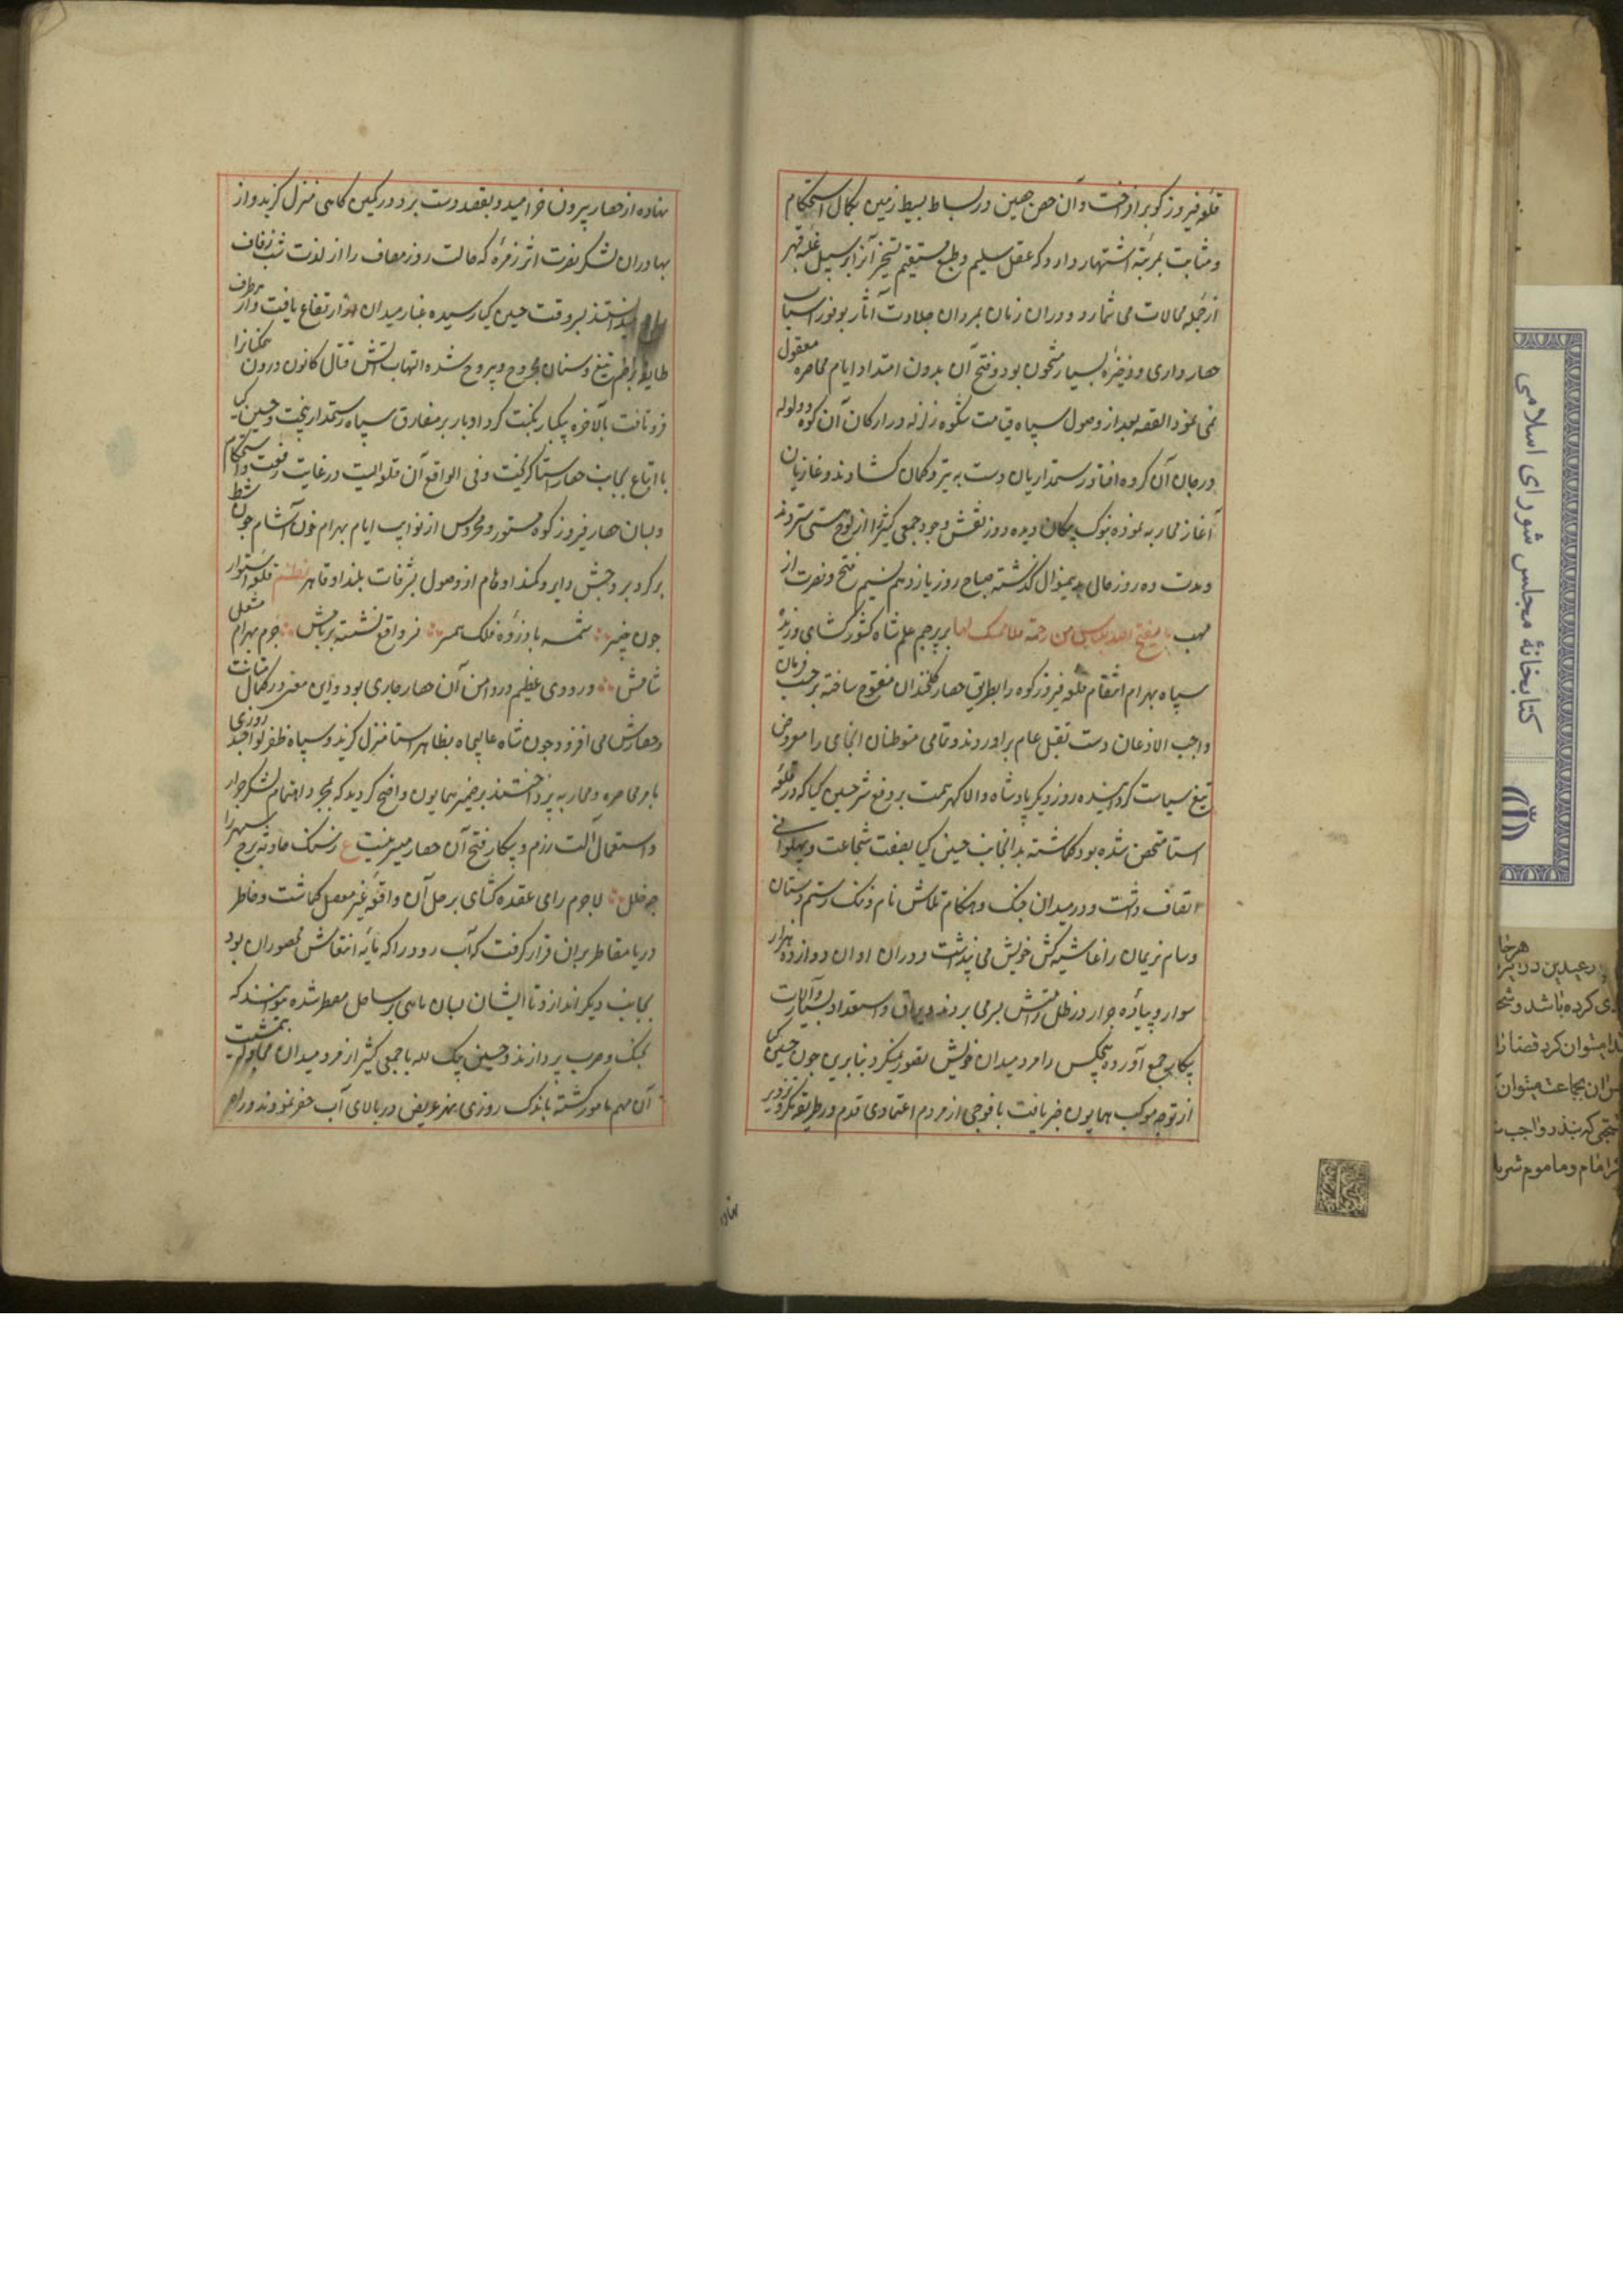 قلعه فیروز کوه برافراخت و آن حصن حصین در بساط بسیط زمین بکمال استحکام
و متانت بمرتبه اشتهار دارد که عقل سلیم و طبع مستقیم تسخیر آنرا بر سبیل غلبه و قهر
از جمله محالات می شمارد و در ان زمان بمردان جلادت آثار بوفور اسباب
حصار داری و ذخیره بسیار مشحون بود و فتح آن بدون امتداد ایام محاصره معقول
نمی نمود القصه بعد از وصول سپاه قیامت شکوه زلزله در ارکان آن کوه و ولوله
در جان آن کروه افتاد رستمداریان دست به تیر و کمان کشادند و غازیان
آغاز محاربه نموده بنوک پیکان دیده دوز نقش وجود جمعی کثیر را از لوح هستی ستردند
و مدت ده روز حال بدینمنوال کذشته صباح روز یازدهم نسیم فتح و نصرت از
مهب ما یفتح الله للناس من رحمة فلا ممسک لها بر پرچم علم شاه کشور کشای وزید
سپاه بهرام انتقام قلعه فیروز کوه را بطریق حصار کلخندان مفتوح ساخته بر حسب فرمان
واجب الاذعان دست بقتل عام براوردند و تمامی متوطنان انجای را معروض
تیغ سیاست کردانیده روز دیکر پادشاه والا کهر همت بر دفع شر حسین کیا که در قلعه
استا متحصن شده بود کماشته بدانجانب حسین کیا بصفت شجاعت و پهلوانی
اتصاف داشت و در میدان جنک و هنکام تلاش نام و ننک رستم دستان
و سام نریمان را غاشیه کش خویش می پنداشت و در ان اوان دوازده هزار
سوار و پیاده جرار در ظل رایتش بسر می بردند و یراق و استعداد بسیار و آلات
پیکار جمع آورده هیچکس را مرد میدان خویش تصور نمیکرد بنابرین چون حسین کیا
از توجه موکب همایون خبر یافت با فوجی از مردم اعتمادی قدم در طریق مکر و تزویر
نهاده از حصار بیرون خرامید و بقصد دست برد در کمین کاهی منزل کزید و از
بهادران لشکر نصرت اثر زمره که حالت روز مصاف را از لذت شب زفاف
میدانستند بسر وقت حسین کیا رسیده غبار میدان ارتفاع یافت و از طرف
بزخم تیغ و سنان مجروح و بیروح شده التهاب آتش قتال کانون درون همکنانرا
فرو تافت بالآخره پیکبار نکبت کرد ادبار بر مفارق سپاه رستمدار بیخت و حسین کیا
با اتباع بجانب حصار استا کریخت و فی الواقع آن قلعه ایست در غایت رفعت و استحکام
و بسان حصار فیروز کوه مستور و محروس از نوایب ایام بهرام خون آشام چون شط
بر کرد بروجش دایر و کمند اوهام از وصول بشرفات بلند او قاصر نظم قلعه استوار
چون خیبر شمسه با ذروه فلک همسر نسر واقع نشسته بر بامش جرم بهرام مشعل
شامش و رودی عظیم در دامن آن حصار جاری بود و این معنی در کمال متانت
و حصارش می افزود چون شاه عالیجاه بظاهر استا منزل کزید و سپاه ظفر لوا چند روزی
بامر محاصره و محاربه پرداختند بر ضمیر همایون واضح کردید که بمجرد اهتمام لشکر جرار
و استعمال آلت رزم و پیکار فتح آن حصار میسر نیست ع ز سنک حادثه برج سپهر را
چه خلل لاجرم رای عقده کشای بر حل آن واقعه غیر معضل کماشت و خاطر
دریا مقاطر بران قرار کرفت که آب رود را که مایه انتعاش محصوران بود
بجانب دیکر اندازد تا ایشان بسان ماهی بر ساحل مضطر شده نتوانند که
بجنک و حرب پردازند و حسین بیک لله با جمعی کثیر از مرد میدان
آن مهم مامور کشته باندک روزی نهر عریض در بالای آب حفر نمودند و راه
نهاده
کتابخانهٔ مجلس شورای اسلامی